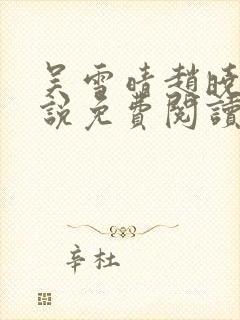 吴雪晴趙曉
說免費閱讀
辛杜